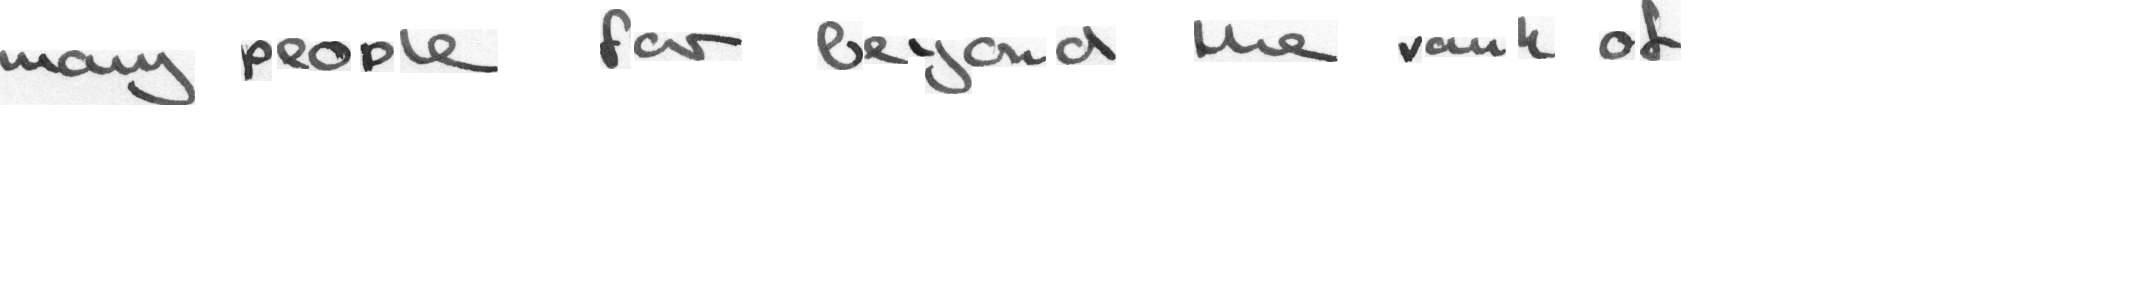 many people far beyond the rank of